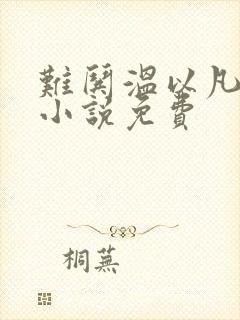 難鬨溫以凡
小說免費
桐蕪